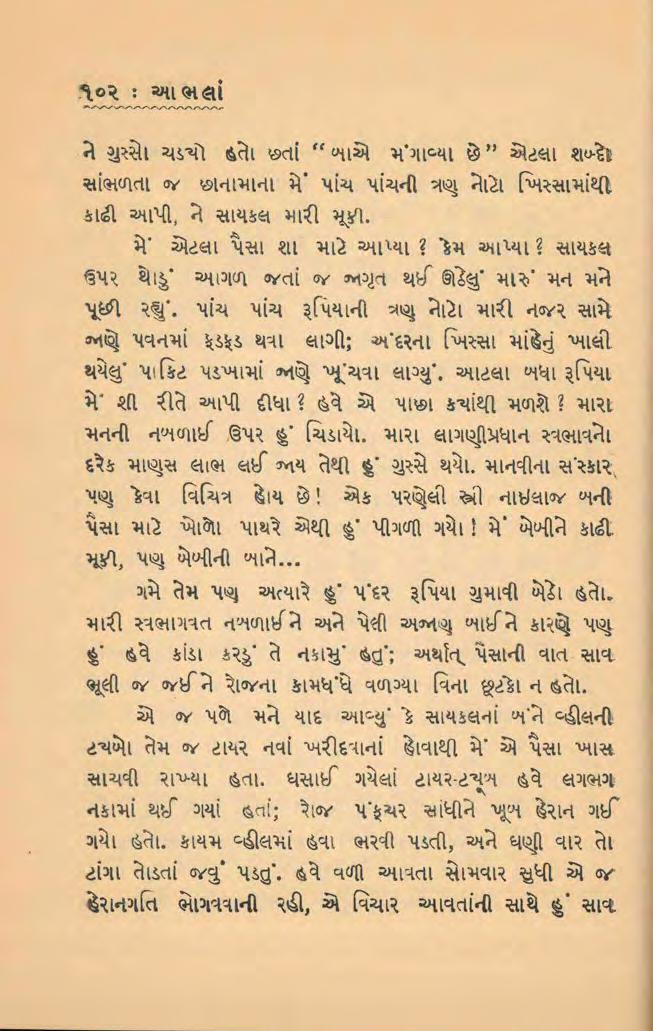 ૧૦૨ : આભલાં
ને ગુસ્સો ચડ્યો હતો છતાં “બાએ મંગાવ્યા છે” એટલા શબ્દો
સાંભળતા જ છાનામાના મેં પાંચ પાંચની ત્રણ નોટો ખિસ્સામાંથી
કાઢી આપી, ને સાયકલ મારી મૂકી.
મેં એટલા પૈસા શા માટે આપ્યા ? કેમ આપ્યા ? સાયકલ
ઉપર થોડું આગળ જતાં જ જાગૃત થઈ ઊઠેલું મારું મન મને
પૂછી રહ્યું. પાંચ પાંચ રૂપિયાની ત્રણ નોટો મારી નજર સામે
જાણે પવનમાં ફડફડ થવા લાગી; અંદરના ખિસ્સા માંહેનું ખાલી
થયેલું પાકિટ પડખામાં જાણે ખૂંચવા લાગ્યું. આટલા બધા રૂપિયા
મેં શી રીતે આપી દીધા ? હવે એ પાછા ક્યાંથી મળશે ? મારા
મનની નબળાઈ ઉપર હું ચિડાયો. મારા લાગણીપ્રધાન સ્વભાવનો
દરેક માણસ લાભ લઈ જાય તેથી હું ગુસ્સે થયો. માનવીના સંસ્કાર
પણ કેવા વિચિત્ર હોય છે ! એક પરણેલી સ્ત્રી નાઇલાજ બની
પૈસા માટે ખોળો પાથરે એથી હું પીગળી ગયો ! મેં બેબીને કાઢી
મૂકી, પણ બેબીની બાને...
ગમે તેમ પણ અત્યારે હું પંદર રૂપિયા ગુમાવી બેઠો હતો.
મારી સ્વભાગવત નબળાઈને અને પેલી અજાણ બાઈને કારણે પણ
હું હવે કાંડા કરડું તે નકામું હતું; અર્થાત્ પૈસાની વાત સાવ
ભૂલી જ જઈને રોજના કામધંધે વળગ્યા વિના છૂટકો ન હતો.
એ જ પળે મને યાદ આવ્યું કે સાયકલનાં બંને વ્હીલની
ટચબો તેમ જ ટાયર નવાં ખરીદવાનાં હોવાથી મેં એ પૈસા ખાસ
સાચવી રાખ્યા હતા. ઘસાઈ ગયેલાં ટાયર-ટચૂબ હવે લગભગ
નકામાં થઈ ગયાં હતાં; રોજ પંક્ચર સાંધીને ખૂબ હેરાન ગઈ
ગયો હતો. કાયમ વ્હીલમાં હવા ભરવી પડતી, અને ઘણી વાર તો
ટાંગા તોડતાં જવું પડતું. હવે વળી આવતા સોમવાર સુધી એ જ
હેરાનગતિ ભોગવવાની રહી, એ વિચાર આવતાંની સાથે હું સાવ